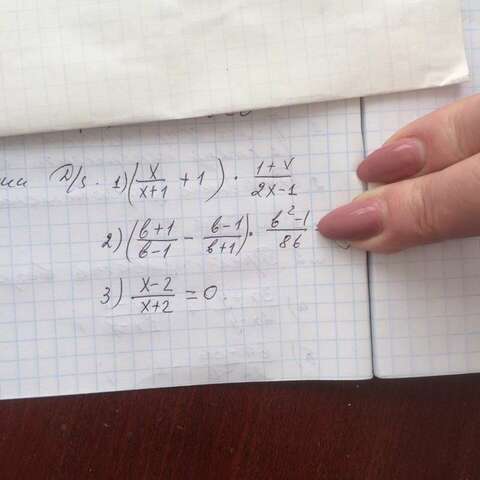 D/з. 1) (x/(x+1) + 1) · (1+x)/(2x-1)
2) ((b+1)/(b-1) - (b-1)/(b+1)) · (b²-1)/8b
3) (x-2)/(x+2) = 0